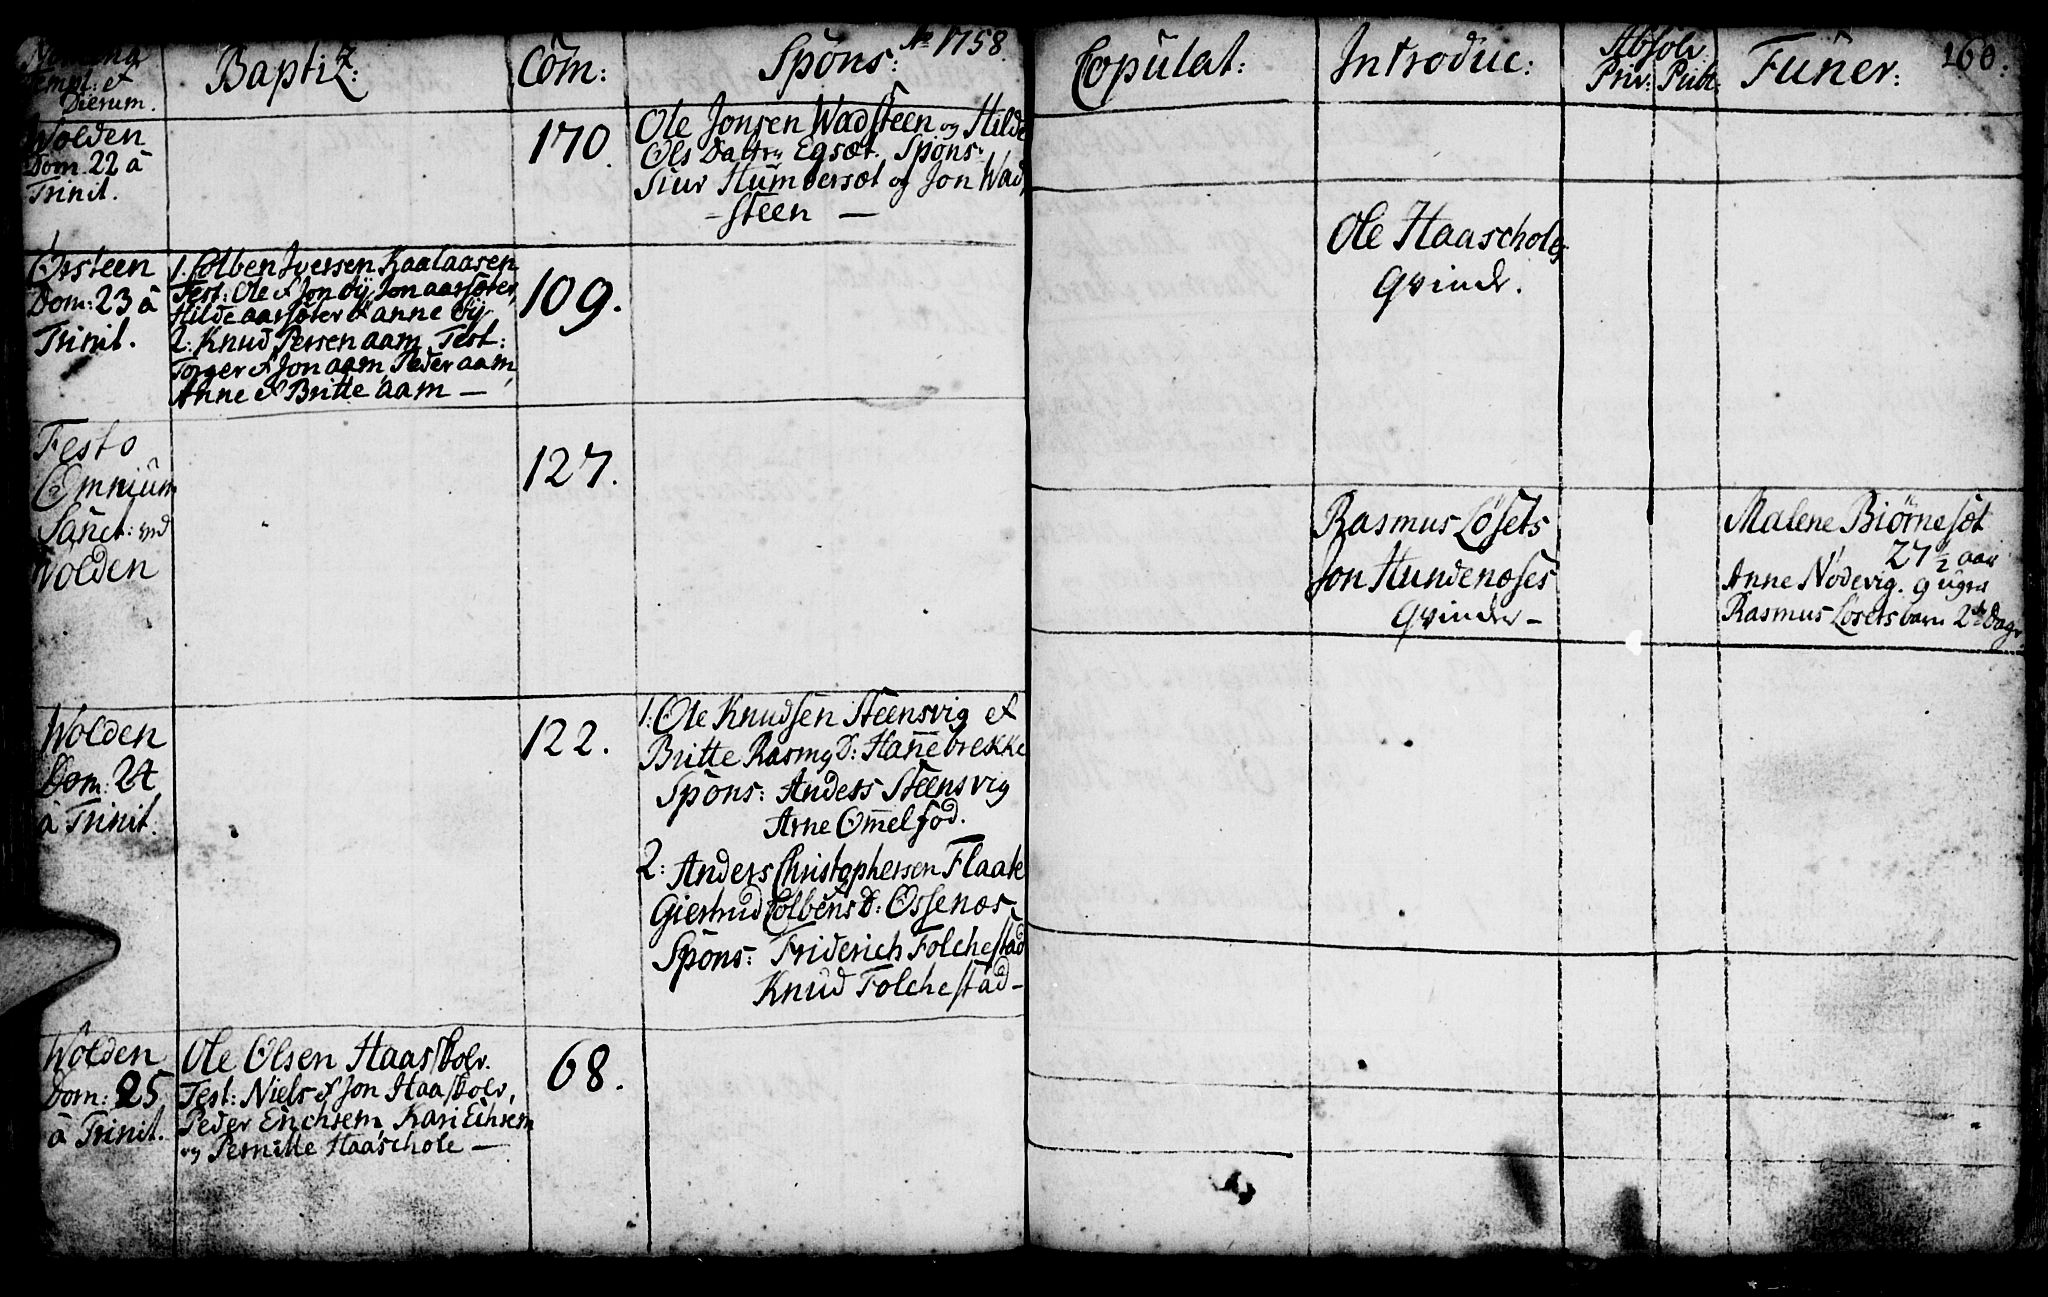 Nomina
Templ: et
Dierum.
Baptiz:
Com:
Spons:
Ao 1758.
Copulat:
Introduc:
Absolv
Priv: Publ:
Funer:
160:
Wolden
Dom. 22 à
Trinit.
170.
Ole Jonsen Wadsteen og Hilde
Ols Dattr Egsæt. Spons:
Siur Humbersæt og Jon Wad
-steen —
Ørsteen
Dom: 23 à
Trinit.
1. Colben Iversen Kaalaasen
Test: Ole & Jon Øÿ, Jon aarsæter,
Hilde aarsæter & anne Øÿ
2: Knud Persen aam Test:
Torger & Jon aam, Peder aam,
Anne & Britte aam —
109.
Ole Haaschols
qvinde.
Festo
Omnium
Sanct: ved
Wolden
127.
Rasmus Løsets
Jon Hundenæses
qvinder —
Malene Biørnesæt
27½ aar
Anne Nødevig. 9 uger
Rasmus Løsets barn 2 Dage
Wolden
Dom: 24
à Trinit.
122.
1: Ole Knudsen Steensvig et
Britte Rasmus D: Hannebrekke
Spons: Anders Steensvig
Arne Omelfod.
2: Anders Christophersen Flaate
Giertrud Colbens D: Ossenæs
Spons: Friderich Folchestad
Knud Folchestad —
Wolden
Dom: 25
à Trinit.
Ole Olsen Haasskolv.
Test: Niels & Jon Haasskolv,
Peder Erichsen, Kari Eihsem
og Pernille Haaschole —
68.